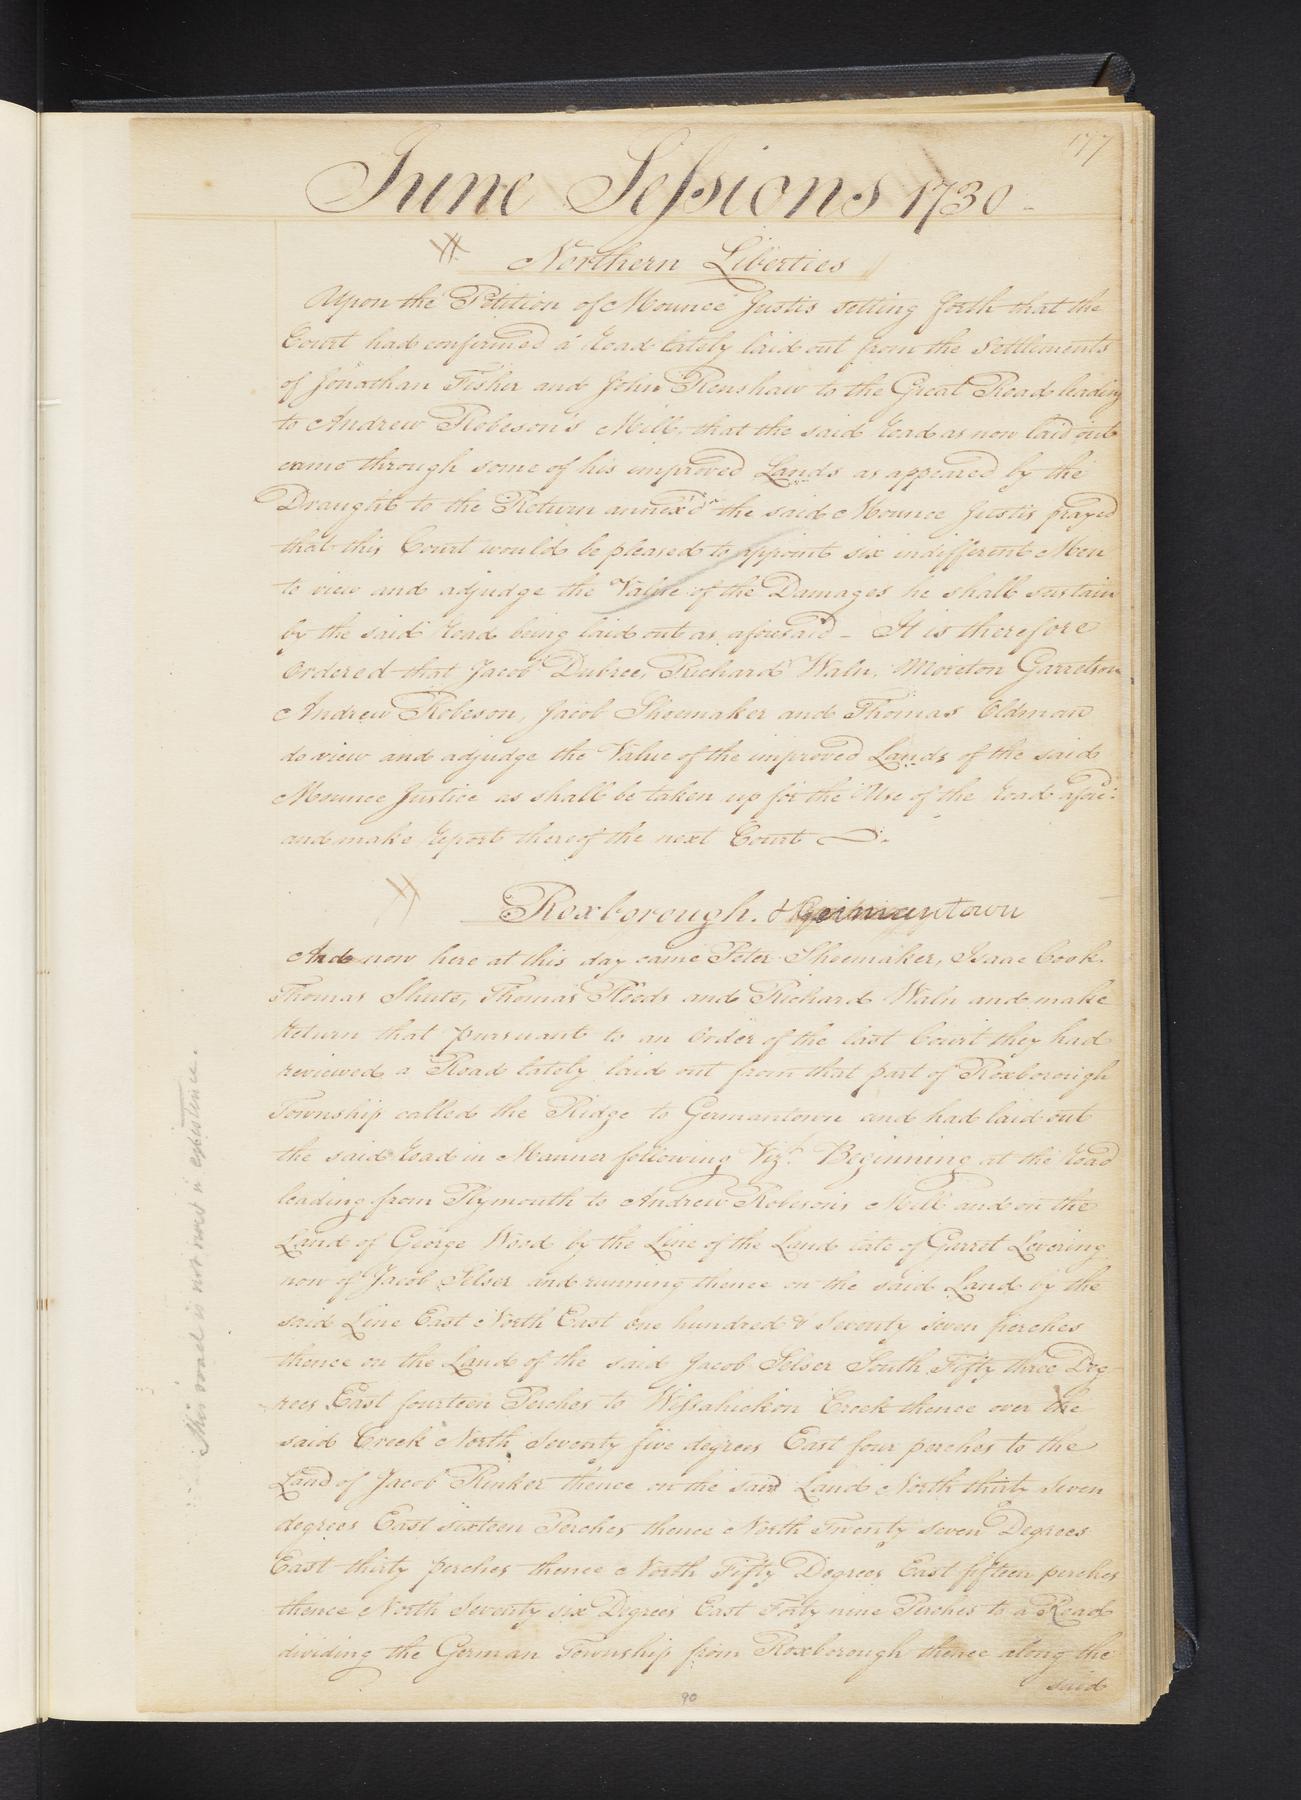 177
June Sessions 1730
Northern Liberties
Upon the Petition of Mounce Justis setting forth that the
Court had confirmed a road lately laid out from the Settlements
of Jonathan Fisher and John Renshaw to the Great Road leading
to Andrew Robeson's Mill. that the said road as now laid out
came through some of his improved Lands as appeared by the
Draught to the Return annex'd the said Mounce Justis prayed
that this Court would be pleased to appoint six indifferent Men
to view and adjudge the Value of the Damages he shall sustain
by the said road being laid out as aforesaid - It is therefore
Ordered that Jacob Dubree, Richard Waln, Moreton Garretson
Andrew Robeson, Jacob Shoemaker and Thomas Oldman
do view and adjudge the Value of the improved Lands of the said
Mounce Justice as shall be taken up for the Use of the road afores:d
and make report thereof the next Court
Roxborough. & Germantown
And now here at this day came Peter Shoemaker, Isaac Cook
Thomas Shute, Thomas Roods and Richard Waln and make
return that pursuant to an Order of the last Court they had
reviewed a Road lately laid out from that part of Roxborough
Township called the Ridge to Germantown and had laid out
the said road in Manner following Viz.t Beginning at the road
leading from Plymouth to Andrew Robesons Mill and on the
Land of George Wood by the Line of the Land late of Garret Levering
now of Jacob Selser and running thence on the said Land by the
said Line East North East one hundred & Seventy seven perches
thence on the Land of the said Jacob Selser South Fifty three Deg
rees East fourteen Perches to Wissahickon Creek thence over the
said Creek North Seventy five degrees East four perches to the
Land of Jacob Rinker thence on the said Land North thirty seven
degrees East sixteen Perches thence North Twenty seven Degrees
East thirty perches thence North Fifty Degrees East fifteen perches
thence North Seventy six Degrees East Forty nine Perches to a Road
dividing the German Township from Roxborough thence along the
said
This road is not now in existence
90